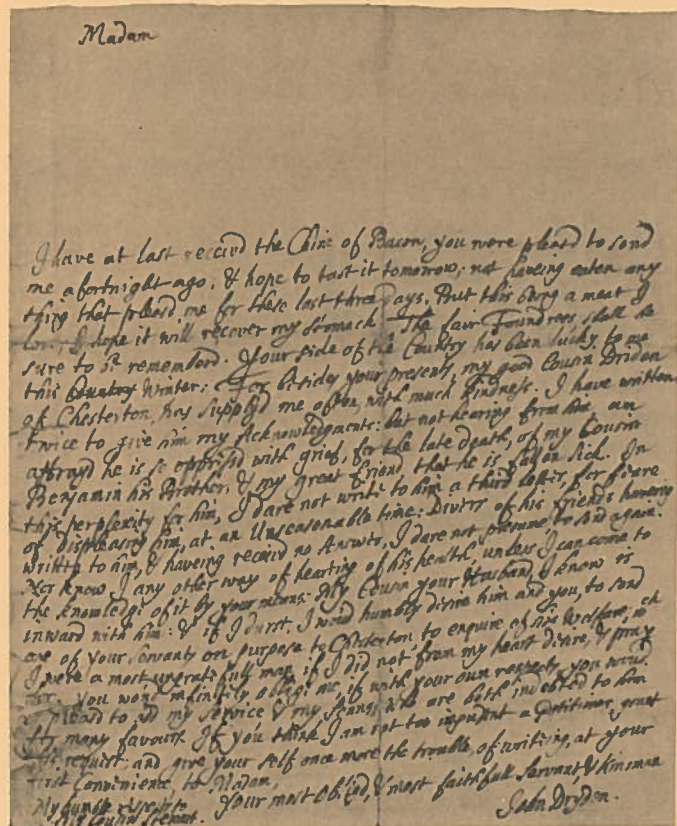 Madam
I have at last receivd the Chine of Bacon, you were pleasd to send
me a fortnight ago, & hope to tast it tomorrow; not haveing eaten any
thing that pleasd me for these last three days. But this being a meat I
love, I hope it will recover my stomach. The fair Foundress shall be
sure to be rememberd. Your side of the Country has been lucky to me
this Country Winter: For besides your presents, my good Cousin Driden
of Chesterton, has supplyd me often, with much kindness. I have written
twice to give him my Acknowledgments: but not hearing from him am
affrayd he is so oppressd with grief, for the late death, of my Cousin
Benjamin his Brother, & my great Friend, that he is fallen sick. In
this perplexity for him, I dare not write to him a third letter, for feare
of displeasing him, at an Unseasonable time: Divers of his friends haveing
written to him, & haveing receivd no Answer, I dare not presume to send again.
Nor know I any other way of hearing of his health, unless I can come to
the knowledge of it by your means: My Cousin your Husband, I know is
inward with him: & if I durst, I woud humbly desire him and you, to send
one of your servants on purpose to Chesterton to enquire of his Welfare, wch
I were a most ungratefull man if I did not from my heart desire, & pray
for. You woud infinitely oblige me, if with your own respects, you woud
be pleasd to add my service & my Sonns, who are both indebted to him
for many favours. If you think I am not too impudent a Petitioner, grant
this request; and give your self once more the trouble, of writing, at your
first Convenience, to Madam,
Your most obligd, & most faithfull Servant & Kinsman
John Dryden.
My humble service to
my Cousin Stewart.